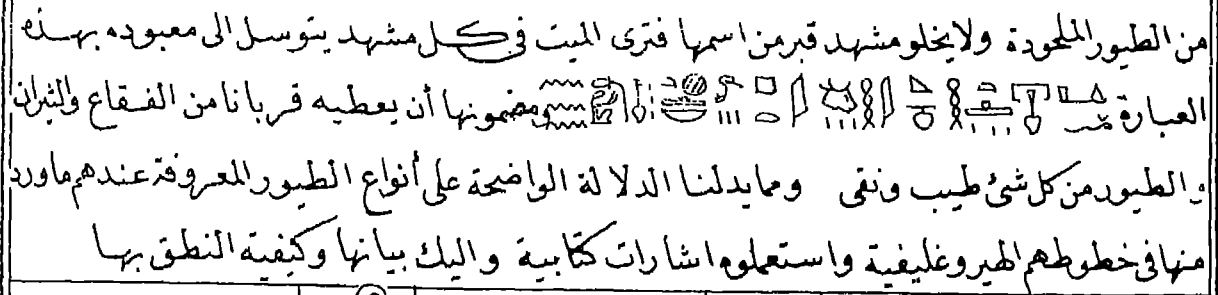 من الطيور الملحودة ولايخلو مشهد قبر من اسمها فترى الميت فى كل مشهد يتوسل الى معبوده بهذه
العبارة ومضمونها أن يعطيه قربانا من الفقاع والثيران
والطيور من كل شئ طيب ونقى ومما يدلنا الدلالة الواضحة على أنواع الطيور المعروفة عندهم ماورد
منها فى خطوطهم الهيروغليفية واستعملوه اشارات كتابية واليك بيانها وكيفية النطق بها